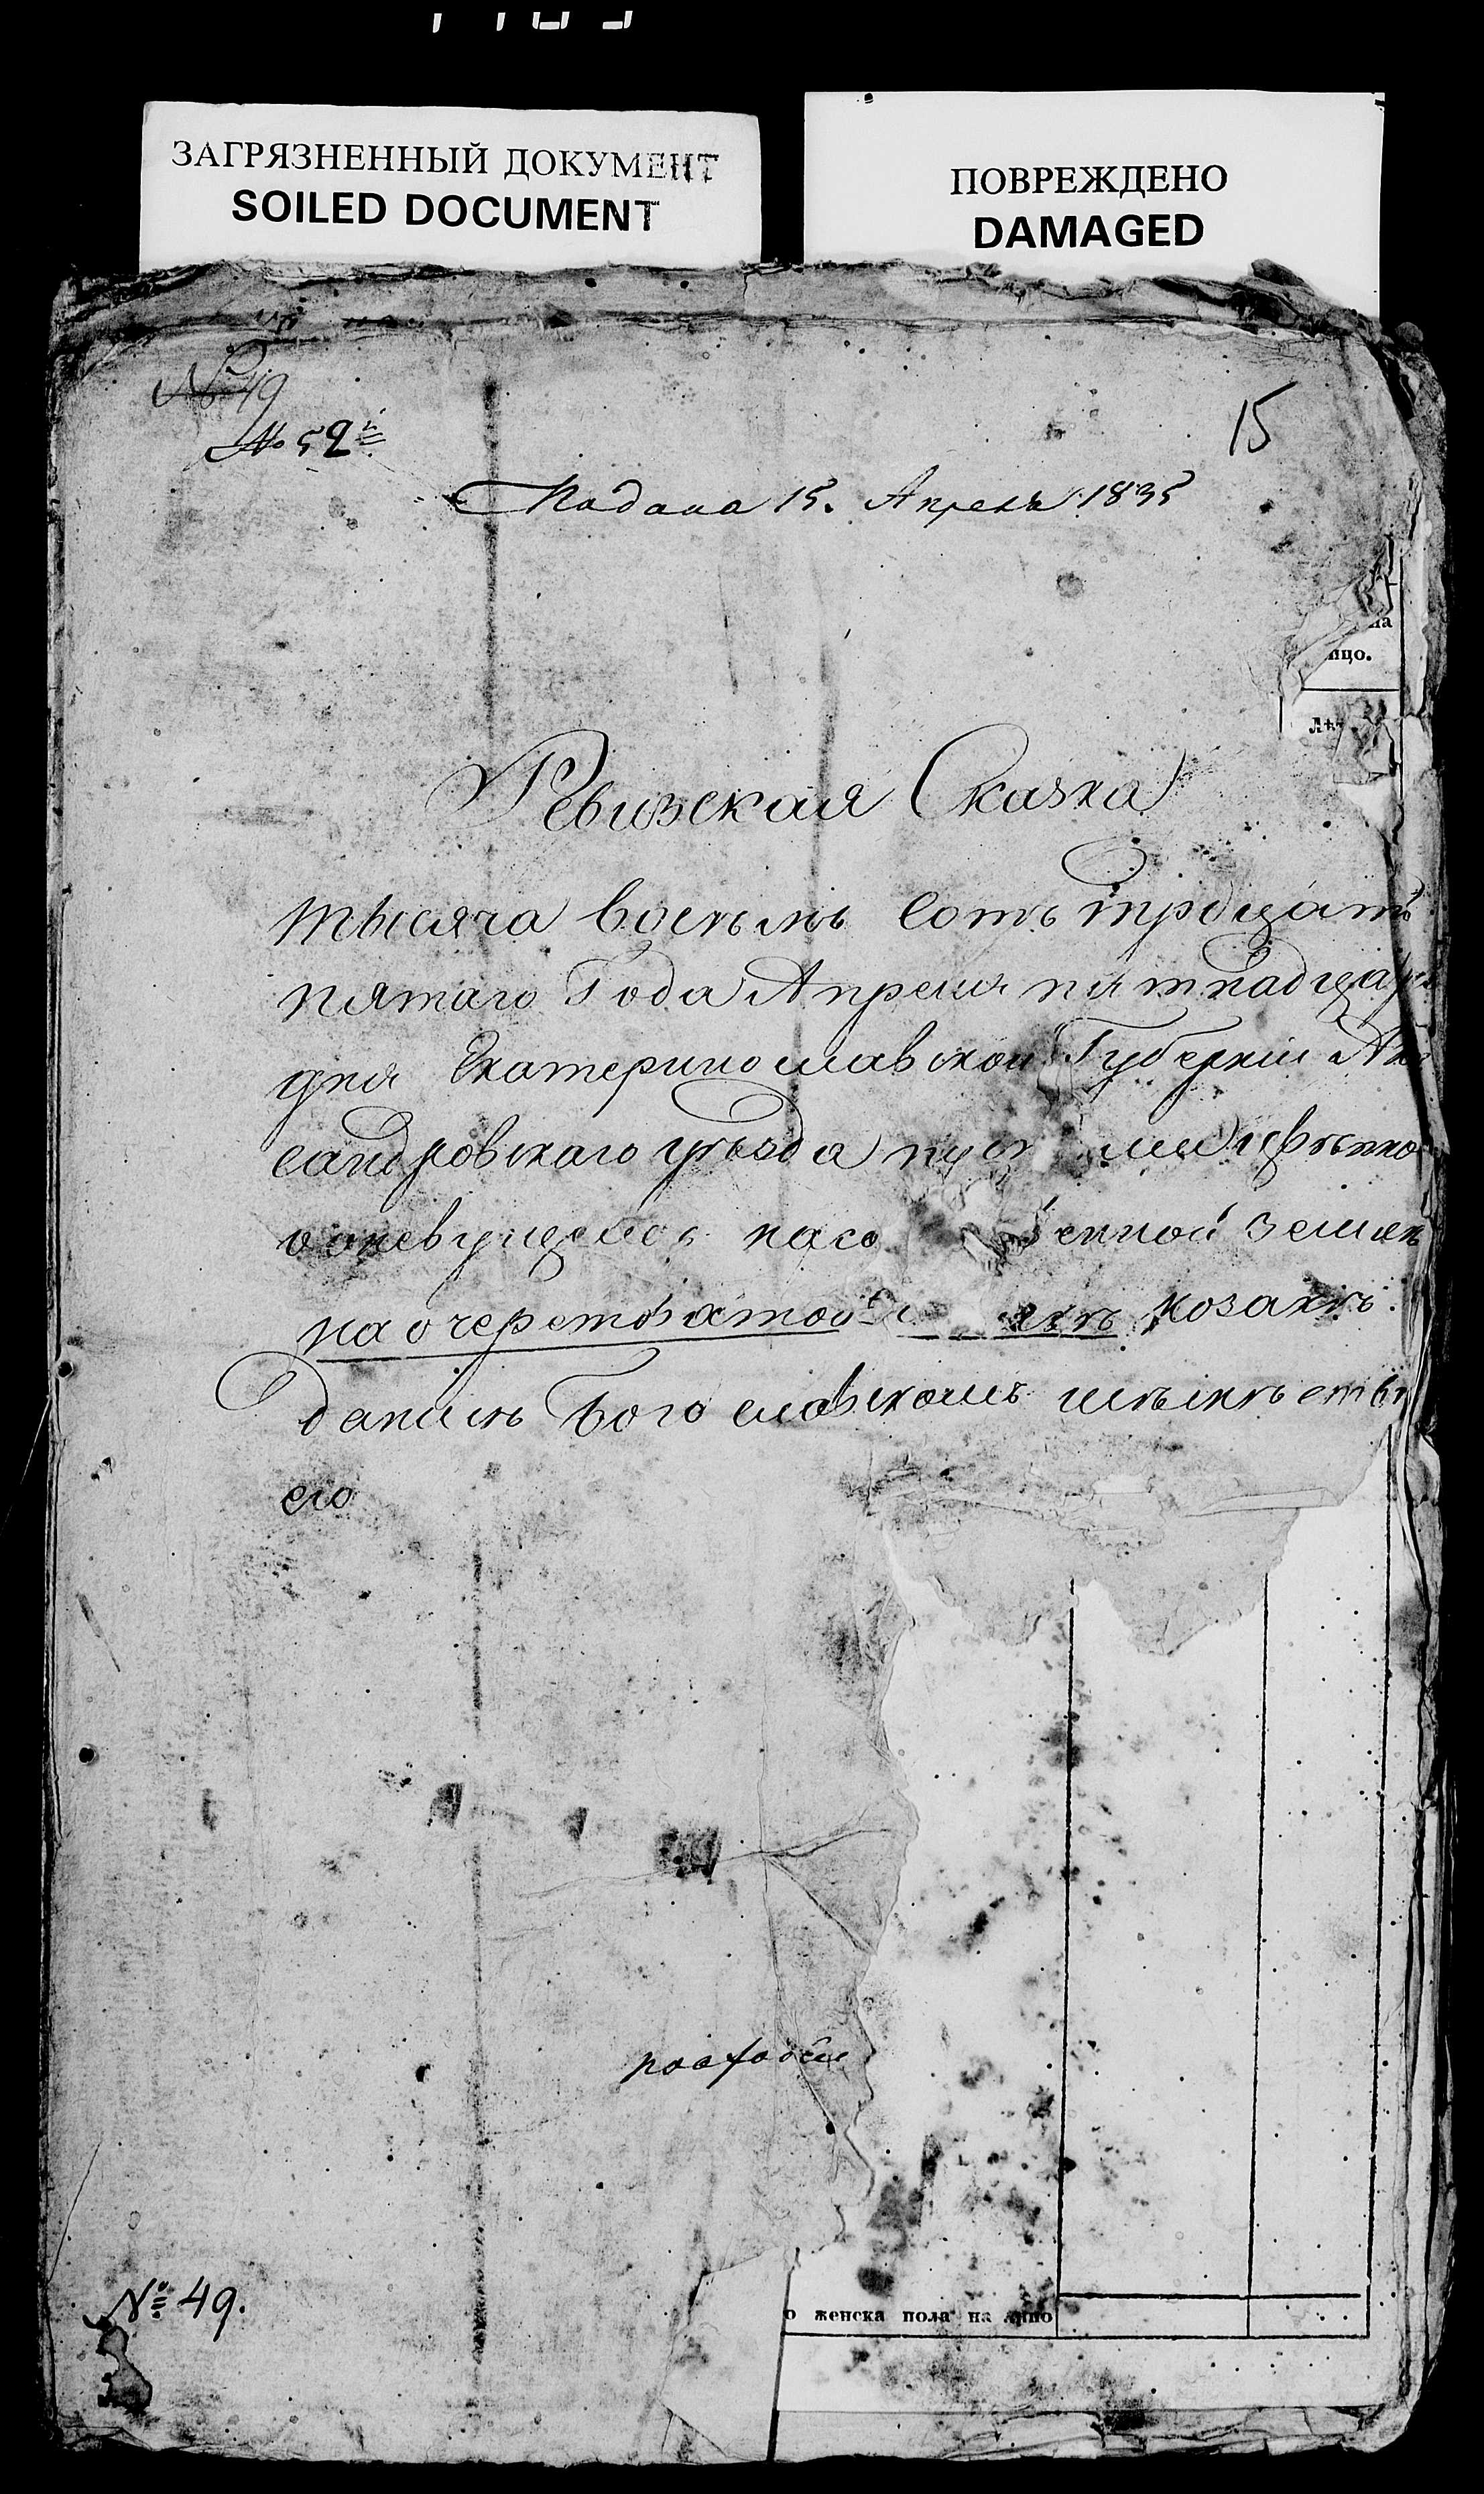 ЗАГРЯЗНЕННЫЙ ДОКУМЕНТ
SOILED DOCUMENT
ПОВРЕЖДЕНО
DAMAGED
№ 49
№ 52
15
Подана 15. Апреля 1835
ицо.
Лѣт
Ревизская Сказка
тысяча восемь сотъ тридцать
пятаго Года Апреля пятнадцатаго
дня Екатеринославской Губерніи Але
сандровскаго уѣзда
насо енной землѣ
на очеретоватой козакѣ.
Данилѣ Богославскомъ
его
№ 49.
о женска пола на лицо